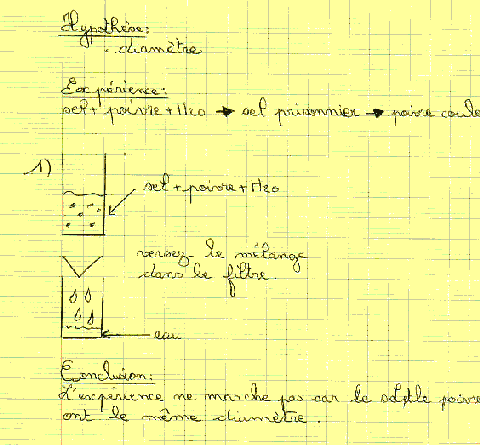 Hypothèse:
. diamètre
Expérience:
sel + poivre + H2O → sel prisonnier → poivre coule
1)
sel + poivre + H2O
versez le mélange
dans le filtre.
eau
Conclusion:
L'expérience ne marche pas car le sel, le poivre
ont le même diamètre.